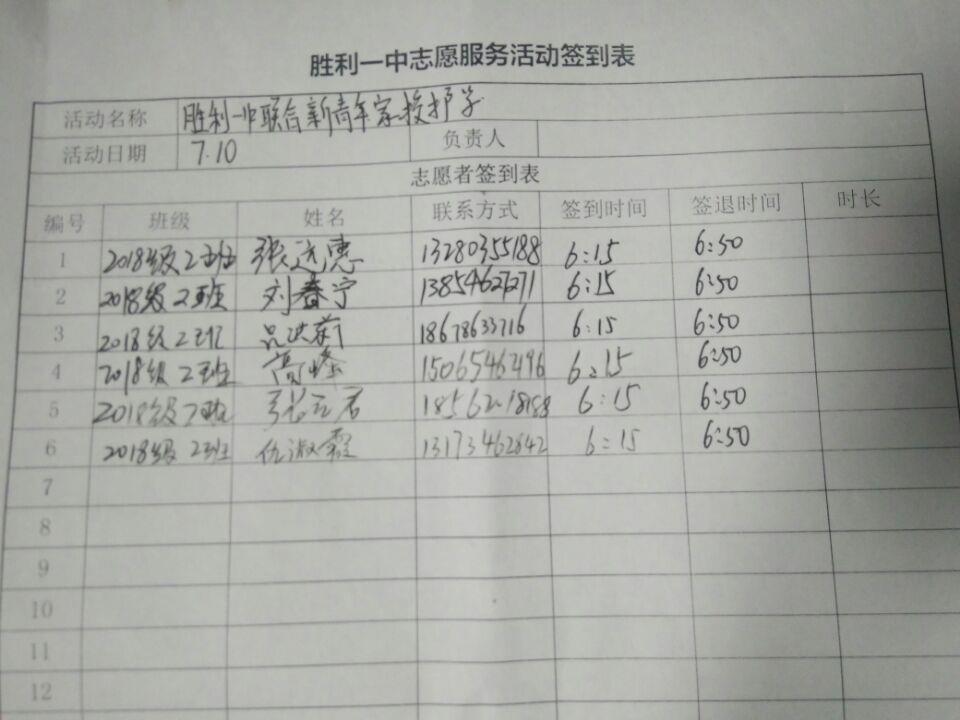 胜利一中志愿服务活动签到表
活动名称 胜利一中联合新青年家校护学
活动日期 7.10 负责人
志愿者签到表
编号 班级 姓名 联系方式 签到时间 签退时间 时长
1 2018级2班 张远惠 13280355188 6:15 6:50
2 2018级2班 刘春宁 13854627271 6:15 6:50
3 2018级2班 吕洪莉 18678633716 6:15 6:50
4 2018级2班 高峰 15065462496 6:15 6:50
5 2018级2班 6:15 6:50
6 2018级2班 仇淑霞 13173462842 6:15 6:50
7
8
9
10
11
12